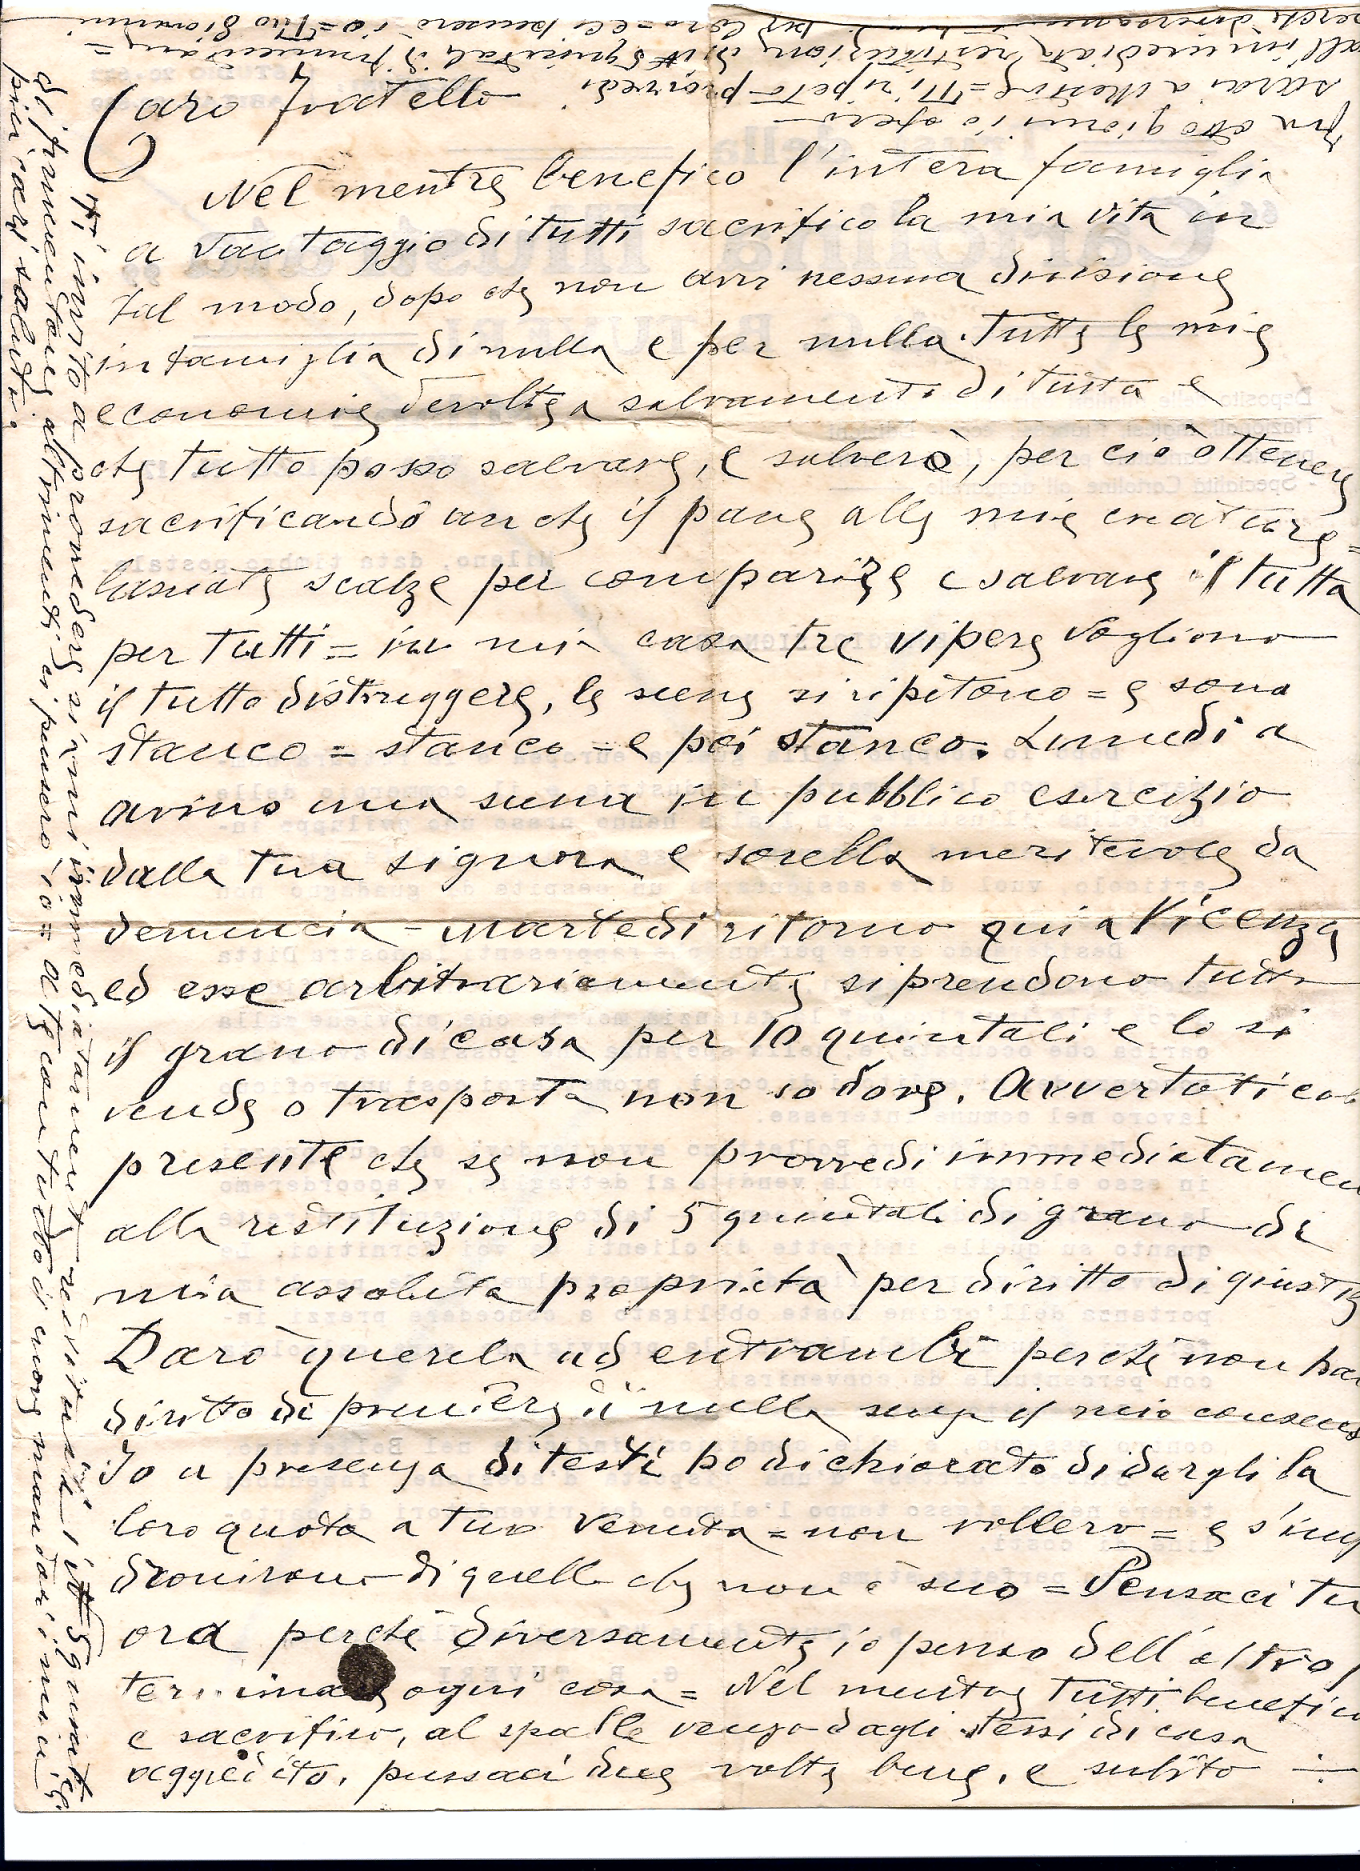 Caro Fratello
Nel mentre benefico l'intera famiglia
a vantaggio di tutti sacrifico la mia vita in
tal modo, dopo che non avvi nessuna divisione
in famiglia di nulla e per nulla. Tutte le mie
economie devolte a salvamento di tutta e
che tutto posso salvare, e salverò, per ciò ottenere
sacrificando anche il pane alle mie creature =
lasciate scalze per comparire e salvare il tutto
per tutti = in mia casa tre vipere vogliono
il tutto distruggere, le scene si ripetono = e sono
stanco = stanco = e poi stanco. Lunedì a
avino una scena in pubblico esercizio
dalla tua signora e sorella meritevole da
denuncia - Martedì ritorno qui a Vicenza
ed esse arbitrariamente si prendono tutto
il grano di casa per 10 quintali e lo si
vende o trasporta non so dove. Avverto ti col
presente che se non provvedi immediatamen
alla restituzione di 5 quintali di grano di
mia assoluta proprietà per diritto di giustiz
Darò querela ad entrambi perché non han
diritto di prendere di nulla senza il mio consenso
Io a presenza di testi ho dichiarato di dargli la
loro quota a tua venuta = non vollero = e s'imp
dronirono di quello che non è suo = Pensaci tu
ora perché diversamente io penso dell'altro
terminare ogni cosa = Nel mentre tutti benefico
e sacrifico, al spalle vengo dagli stessi di casa
aggredito. pensaci due volte bene, e subito
Ti invito a provvedere si mi immediatamente restituire i 5 quint
di frumentone altrimenti ci pensero io = a te con tutto il cuore mandari i miei
piu cari saluti.
fra otto giorni io spero
sarai a Mestre = Ti ripeto provvedi
all'immediata restituzione di 5 quintali di frumentone =
perché diversamente per loro = ci pensero io = Tuo Giovanni